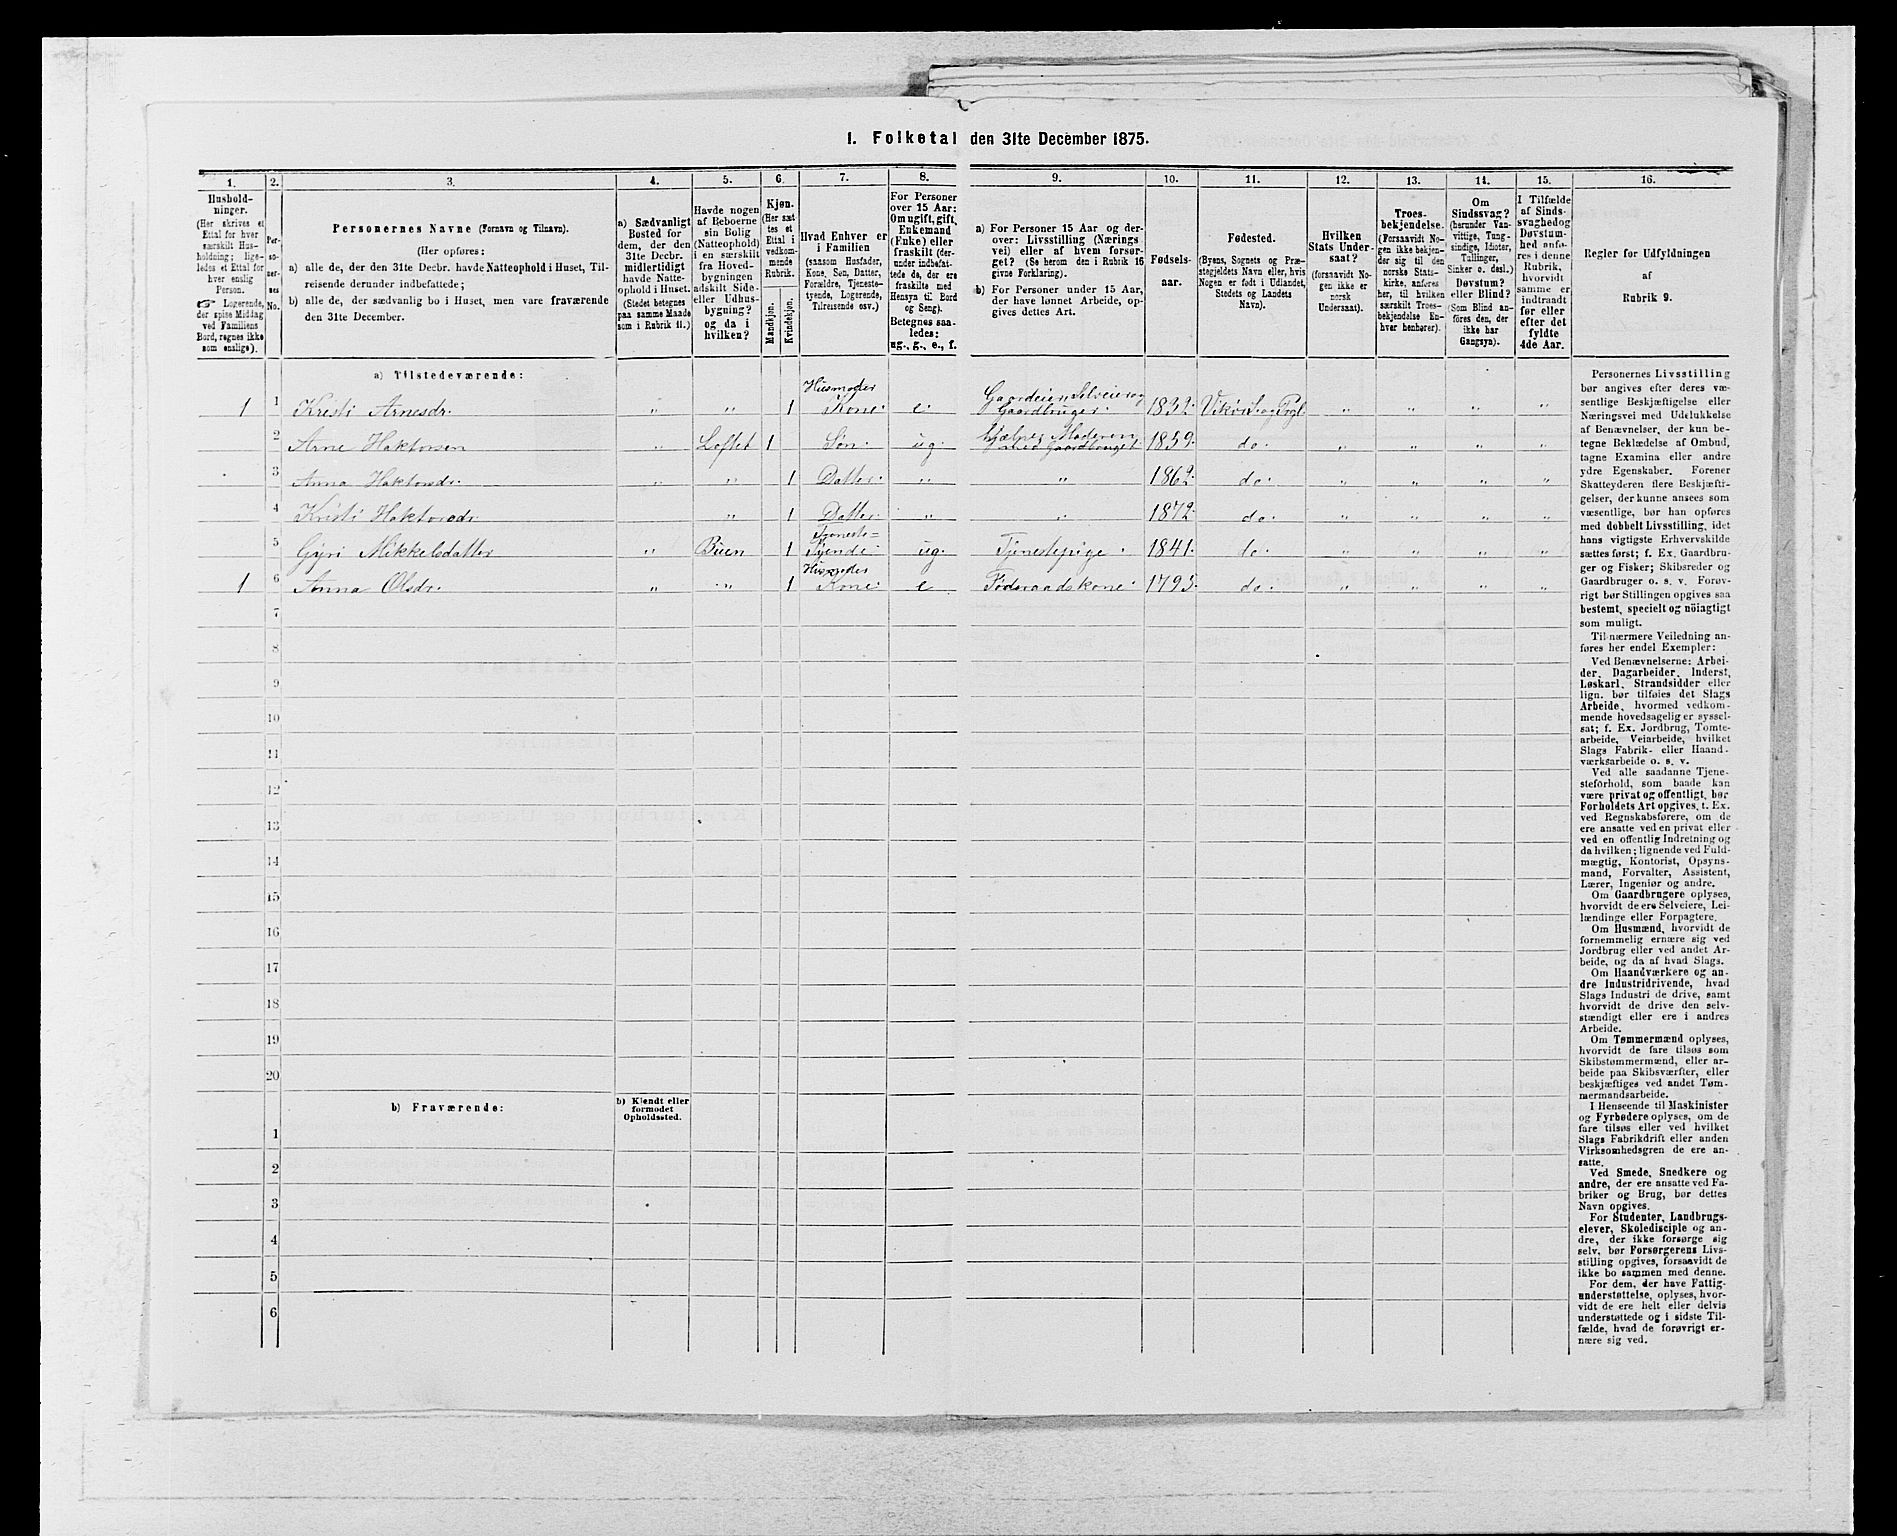 1. Folketal den 31te December 1875.
1. 2. 3. 4. 5. 6. 7. 8. 9. 10. 11. 12. 13. 14. 15. 16.
Hushold-
ninger.
(Her skrives et
Ettal for hver
særskilt Hus-
holdning; lige-
ledes et Ettal for
hver enslig
Person.
☞ Logerende,
der spise Middag
ved Familiens
Bord, regnes ikke
som enslige).
Per-
so-
ner-
nes
No.
Personernes Navne (Fornavn og Tilnavn).
(Her opføres:
a) alle de, der den 31te Decbr. havde Natteophold i Huset, Til-
reisende derunder indbefattede;
b) alle de, der sædvanlig bo i Huset, men vare fraværende
den 31te December.
a) Sædvanligt
Bosted for
dem, der den
31te Decbr.
midlertidigt
havde Natte-
ophold i Huset.
(Stedet betegnes
paa samme Maade
som i Rubrik 11.)
Havde nogen
af Beboerne
sin Bolig
(Natteophold)
i en særskilt
fra Hoved-
bygningen
adskilt Side-
eller Udhus-
bygning?
og da i
hvilken?
Kjøn.
(Her sæt
tes et
Ettal i
vedkom-
mende
Rubrik.
Mandkjøn.
Kvindekjøn.
Hvad Enhver er
i Familien
(saasom Husfader,
Kone, Søn, Datter,
Forældre, Tjeneste-
tyende, Logerende,
Tilreisende osv.)
For Personer
over 15 Aar:
Om ugift, gift,
Enkemand
(Enke) eller
fraskilt (der-
under indbefat-
tede de, der ere
fraskilte med
Hensyn til Bord
og Seng).
Betegnes saa-
ledes:
ug., g., e., f.
a) For Personer 15 Aar og der-
over: Livsstilling (Nærings
vei) eller af hvem forsør-
get? (Se herom den i Rubrik 16
givne Forklaring).
b) For Personer under 15 Aar,
der have lønnet Arbeide, op-
gives dettes Art.
Fødsels-
aar.
Fødested.
(Byens, Sognets og Præ-
stegjeldets Navn eller, hvis
Nogen er født i Udlandet,
Stedets og Landets
Navn).
Hvilken
Stats Under-
saat?
(forsaavidt No-
gen ikke er
norsk
Undersaat).
Troes-
bekjendelse.
(Forsaavidt No-
gen ikke bekjen-
der sig til den
norske Stats-
kirke, anføres
her, til hvilken
særskilt Troes-
bekjendelse En-
hver henhører).
Om
Sindssvag?
(herunder Van-
vittige, Tung-
sindige, Idioter,
Tullinger,
Sinker o. desl.)
Døvstum?
eller Blind?
(Som Blind an-
føres den, der
ikke har
Gangsyn).
I Tilfælde
af Sinds-
svaghed og
Døvstum-
hed anfø-
res i denne
Rubrik,
hvorvidt
samme er
indtraadt
før eller
efter det
fyldte
4de Aar.
Regler for Udfyldningen
af
Rubrik 9.
a) Tilstedeværende:
1 1 Kristi Arnesdr. " " 1 Husmoder Kone e. Gaardeier, Selveier og Gaardbruger. 1832. Vikør S. og Pgl. " " " "
2 Arne Haktorsen " Loftet 1 Søn. ug. hjælper Moderen med Gaardbruget. 1859. do. " " " "
3 Anna Haktorsdr. " " 1 Datter. " " 1862. do. " " " "
4 Kristi Haktorsdr. " 1 Datter. " " 1872. do. " " " "
5 Gyri Mikkelsdatter " Buen 1 Tjeneste= Tyende. ug. Tjenestepige. 1841. do. " " " "
1 6 Anna Olsdr. " " 1 Husmoder Kone. eFøderaadskone. 1795. do. " " " "
7
8
9
10
11
12
13
14
15
16
17
18
19
20
b) Fraværende:
b) Kjendt eller
formodet
Opholdssted.
1
2
3
4
5
6
Personernes Livsstilling
bør angives efter deres væ-
sentlige Beskjæftigelse eller
Næringsvei med Udelukkelse
af Benævnelser, der kun be-
tegne Beklædelse af Ombud,
tagne Examina eller andre
ydre Egenskaber. Forener
Skatteyderen flere Beskjæfti-
gelser, der kunne ansees som
væsentlige, bør han opføres
med dobbelt Livsstilling, idet
hans vigtigste Erhvervskilde
sættes først; f. Ex. Gaardbru-
ger og Fisker; Skibsreder og
Gaardbruger o. s. v. Forøv-
rigt bør Stillingen opgives saa
bestemt, specielt og nöiagtigt
som muligt.
Til nærmere Veiledning an-
føres her endel Exempler:
Ved Benævnelserne: Arbei-
der, Dagarbeider, Inderst,
Løskarl, Strandsidder eller
lign. bør tilføies det Slags
Arbeide, hvormed vedkom-
mende hovedsagelig er syssel-
sat; f. Ex. Jordbrug, Tomte-
arbeide, Veiarbeide, hvilket
Slags Fabrik- eller Haand-
værksarbeide o. s. v.
Ved alle saadanne Tjene-
steforhold, som baade kan
være privat og offentligt, bør
Forholdets Art opgives, t. Ex.
ved Regnskabsførere, om de
ere ansatte ved en privat eller
ved en offentlig Indretning og
da hvilken; lignende ved Fuld-
mægtig, Kontorist, Opsyns-
mand, Forvalter, Assistent,
Lærer, Ingeniør og andre.
Om Gaardbrugere oplyses,
hvorvidt de ere Selveiere, Lei-
lændinge eller Forpagtere.
Om Husmænd, hvorvidt de
fornemmelig ernære sig ved
Jordbrug eller ved andet Ar-
beide, og da af hvad Slags.
Om Haandværkere og an-
dre Industridrivende, hvad
Slags Industri de drive, samt
hvorvidt de drive den selv-
stændigt eller ere i andres
Arbeide.
Om Tømmermænd oplyses,
hvorvidt de fare tilsøs som
Skibstømmermænd, eller ar-
beide paa Skibsværfter, eller
beskjæftiges ved andet Tøm-
mermandsarbeide.
I Henseende til Maskinister
og Fyrbødere oplyses, om de
fare tilsøs eller ved hvilket
Slags Fabrikdrift eller anden
Virksomhedsgren de ere an-
satte.
Ved Smede, Snedkere og
andre, der ere ansatte ved Fa-
briker og Brug, bør dettes
Navn opgives.
For Studenter, Landbrugs-
elever, Skoledisciple og an-
dre, der ikke forsørge sig
selv, bør Forsørgerens Livs-
stilling opgives, forsaavidt de
ikke bo sammen med denne.
For dem, der have Fattig-
understøttelse, oplyses, hvor-
vidt de ere helt eller delvis
understøttede og i sidste Til-
fælde, hvad de forøvrigt er-
nære sig ved.